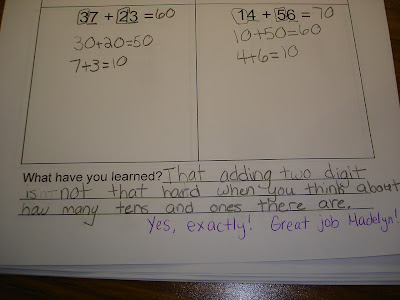 37 + 23 = 60
30+20=50
7+3=10
14 + 56 = 70
10+50=60
4+6=10
What have you learned? That adding two digit
is not that hard when you think about
how many tens and ones there are.
Yes, exactly! Great job Madelyn!